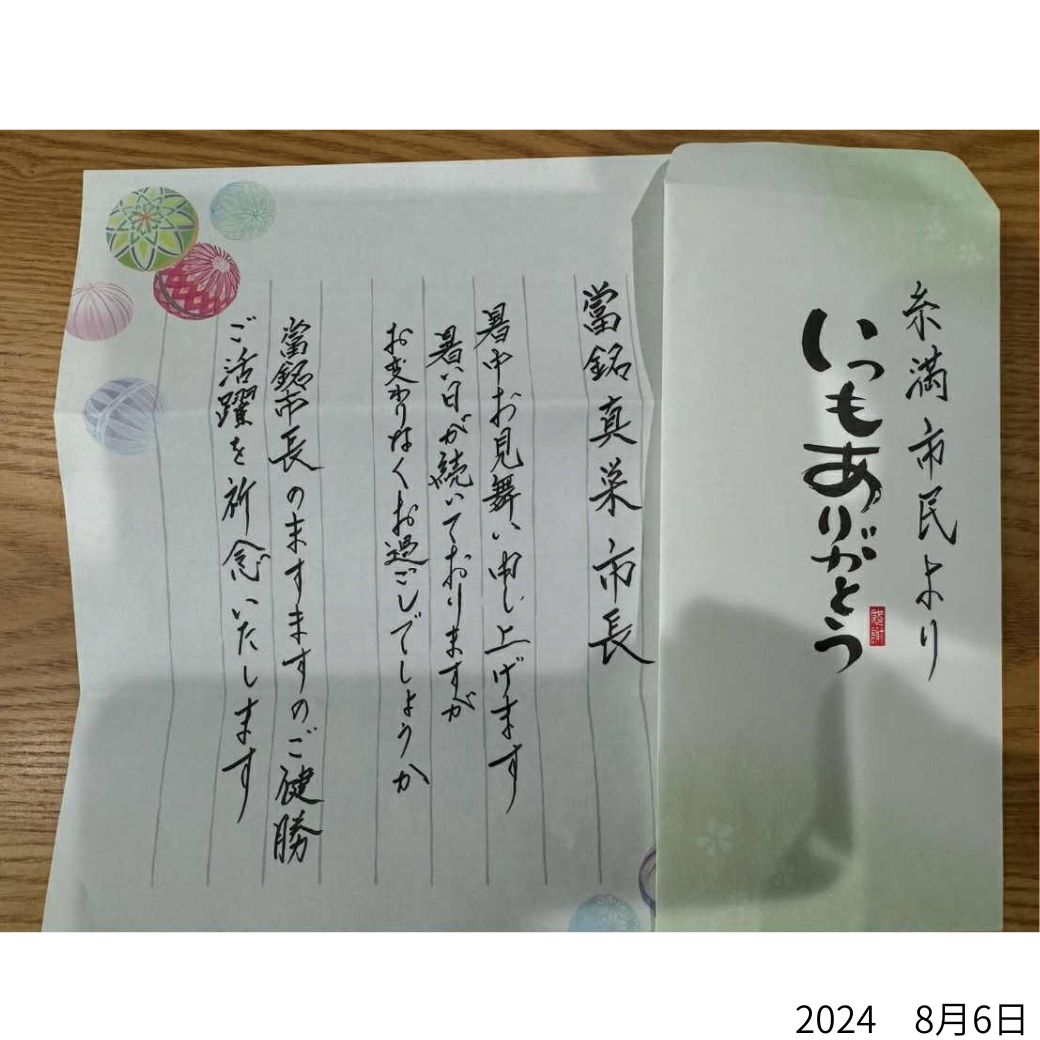 糸満市民より
いつもありがとう
感謝
當銘真栄市長
暑中お見舞い申し上げます
暑い日が続いておりますが
お変わりなくお過ごしでしょうか
當銘市長のますますのご健勝
ご活躍を祈念いたします
2024 8月6日